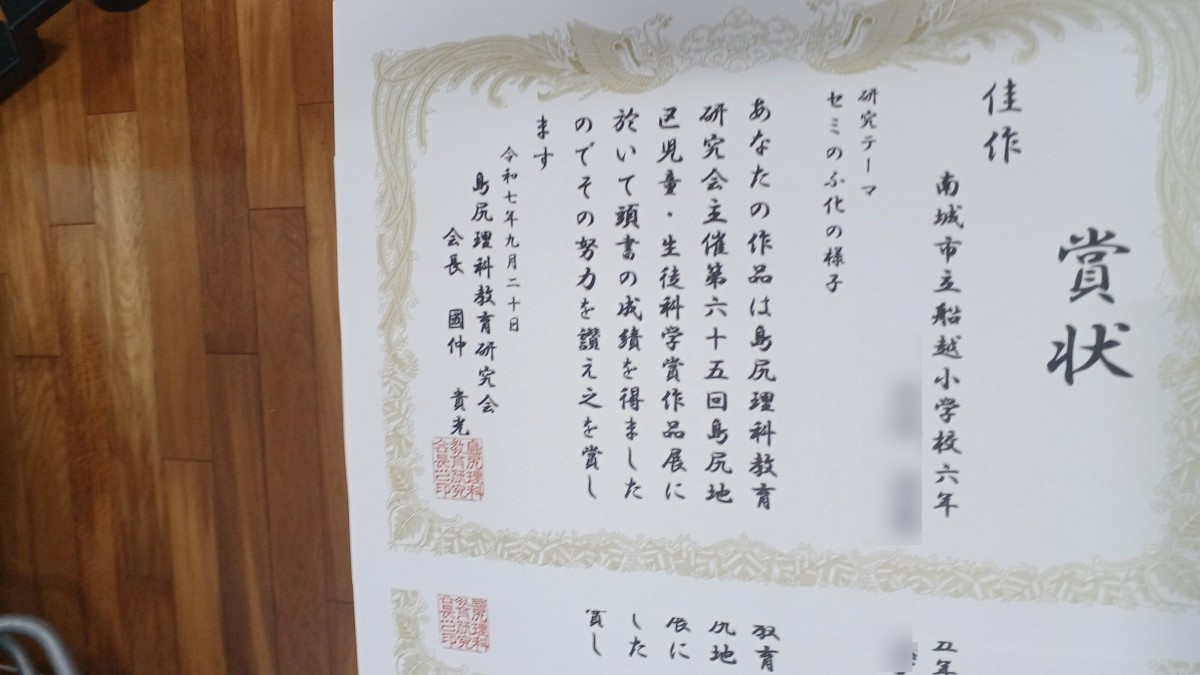 賞状
佳作
南城市立船越小学校六年
研究テーマ
セミのふ化の様子
あなたの作品は島尻理科教育
研究会主催第六十五回島尻地
区児童・生徒科学賞作品展に
於いて頭書の成績を得ました
のでその努力を讃え之を賞し
ます
令和七年九月二十日
島尻理科教育研究会
会長 國仲 貴光
島尻理科
教育研究
会長之印
五年
教育
尻地
展に
した
賞し
島尻理科
教育研究
会長之印